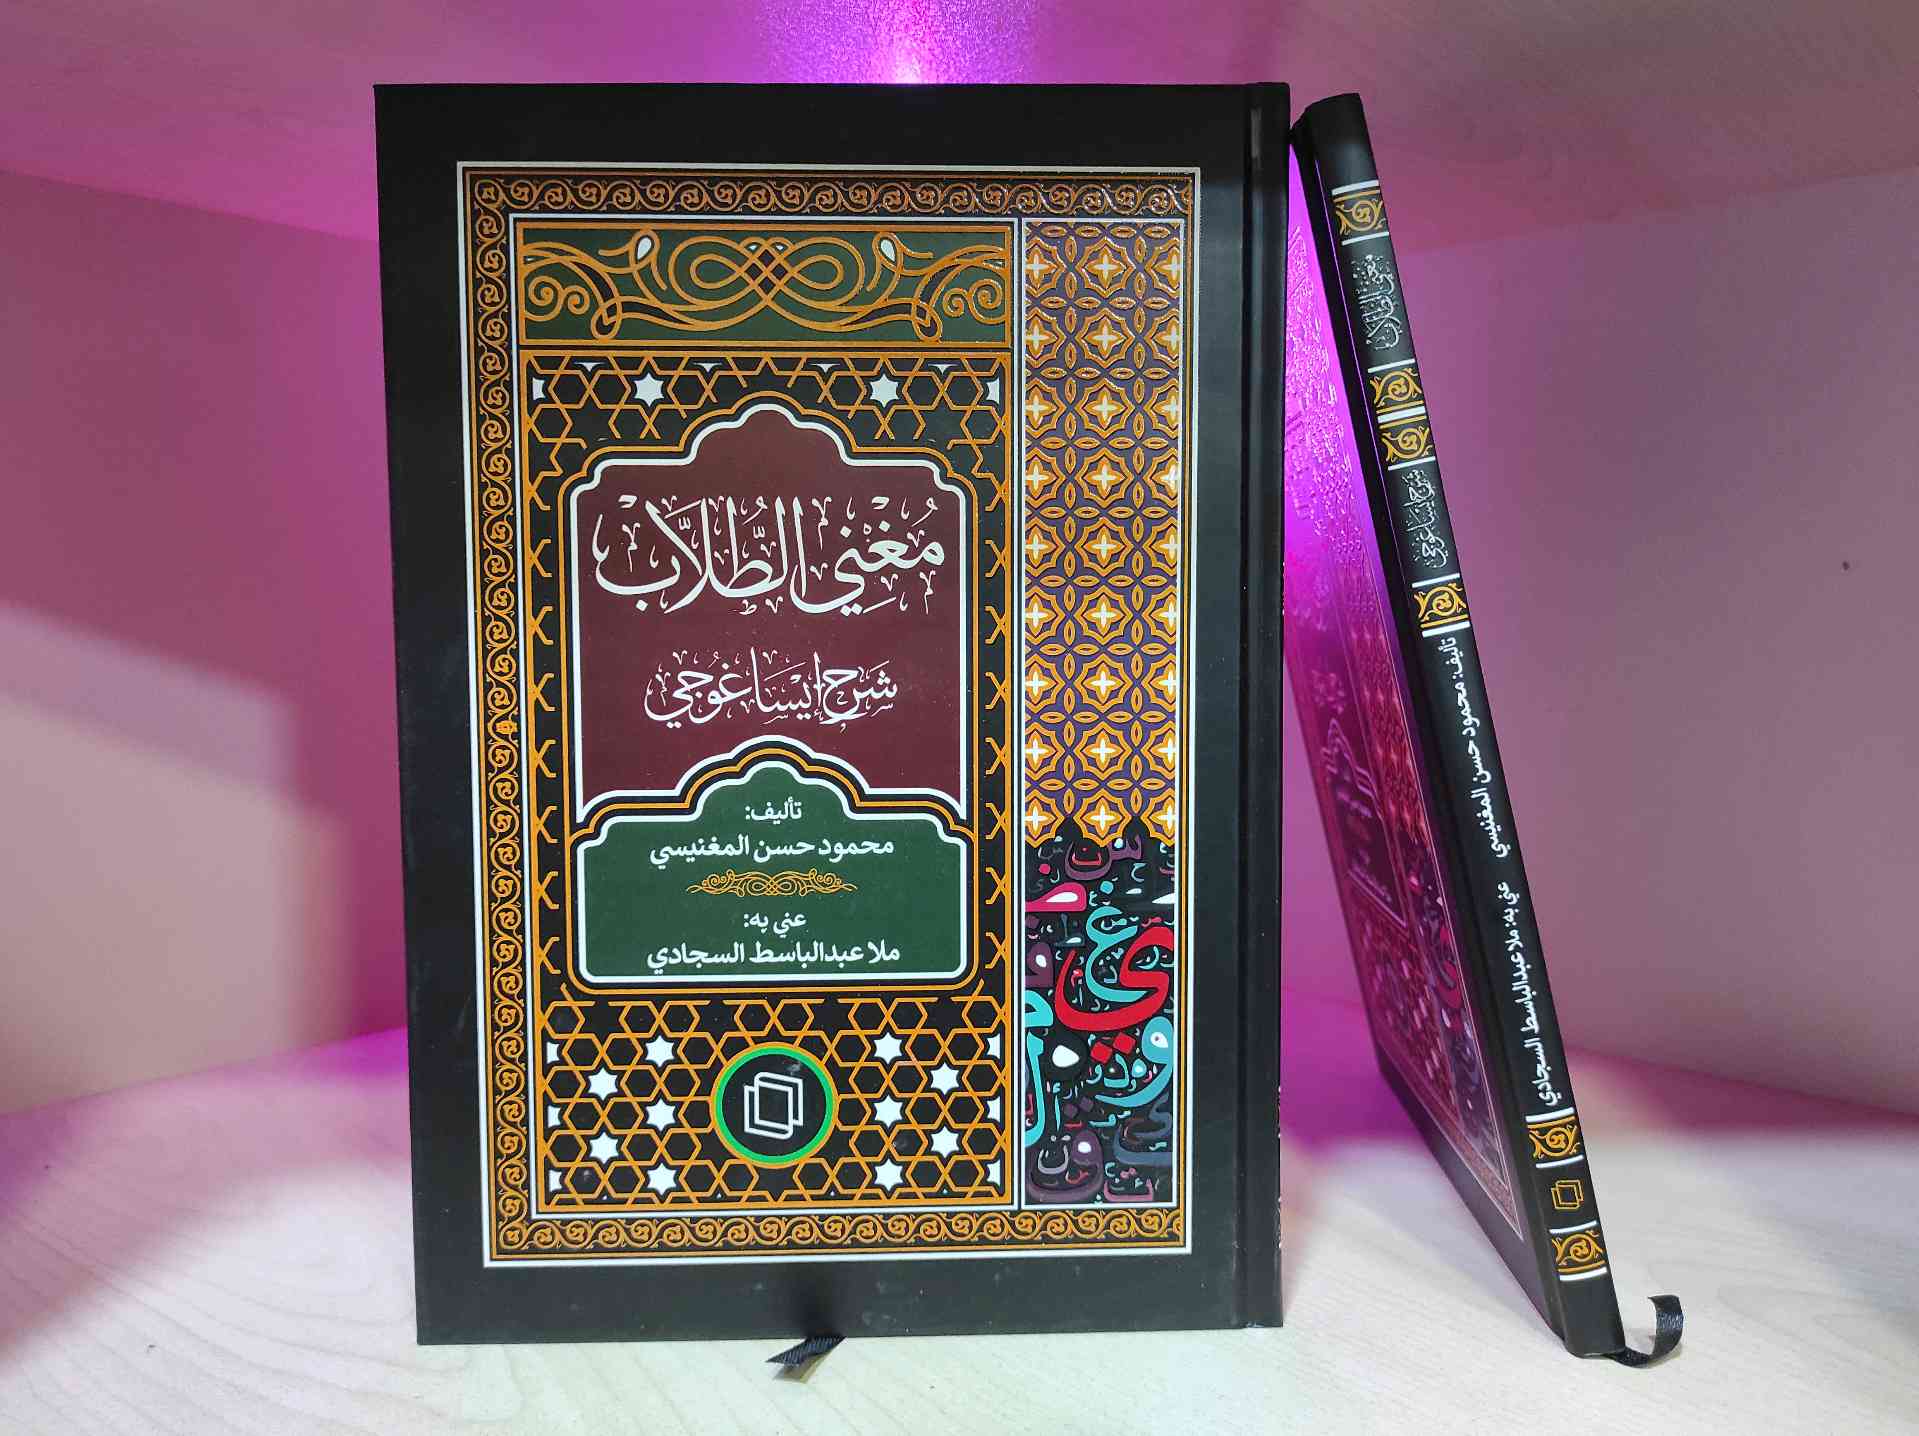 مُغْنِي الطُّلَّابْ
شَرح إيْسَاغُوجي
تأليف:
محمود حسن المغنيسي
عني به:
ملا عبدالباسط السجادي
مغني الطلاب
شرح إيساغوجي
تأليف: محمود حسن المغنيسي عني به: ملا عبدالباسط السجادي